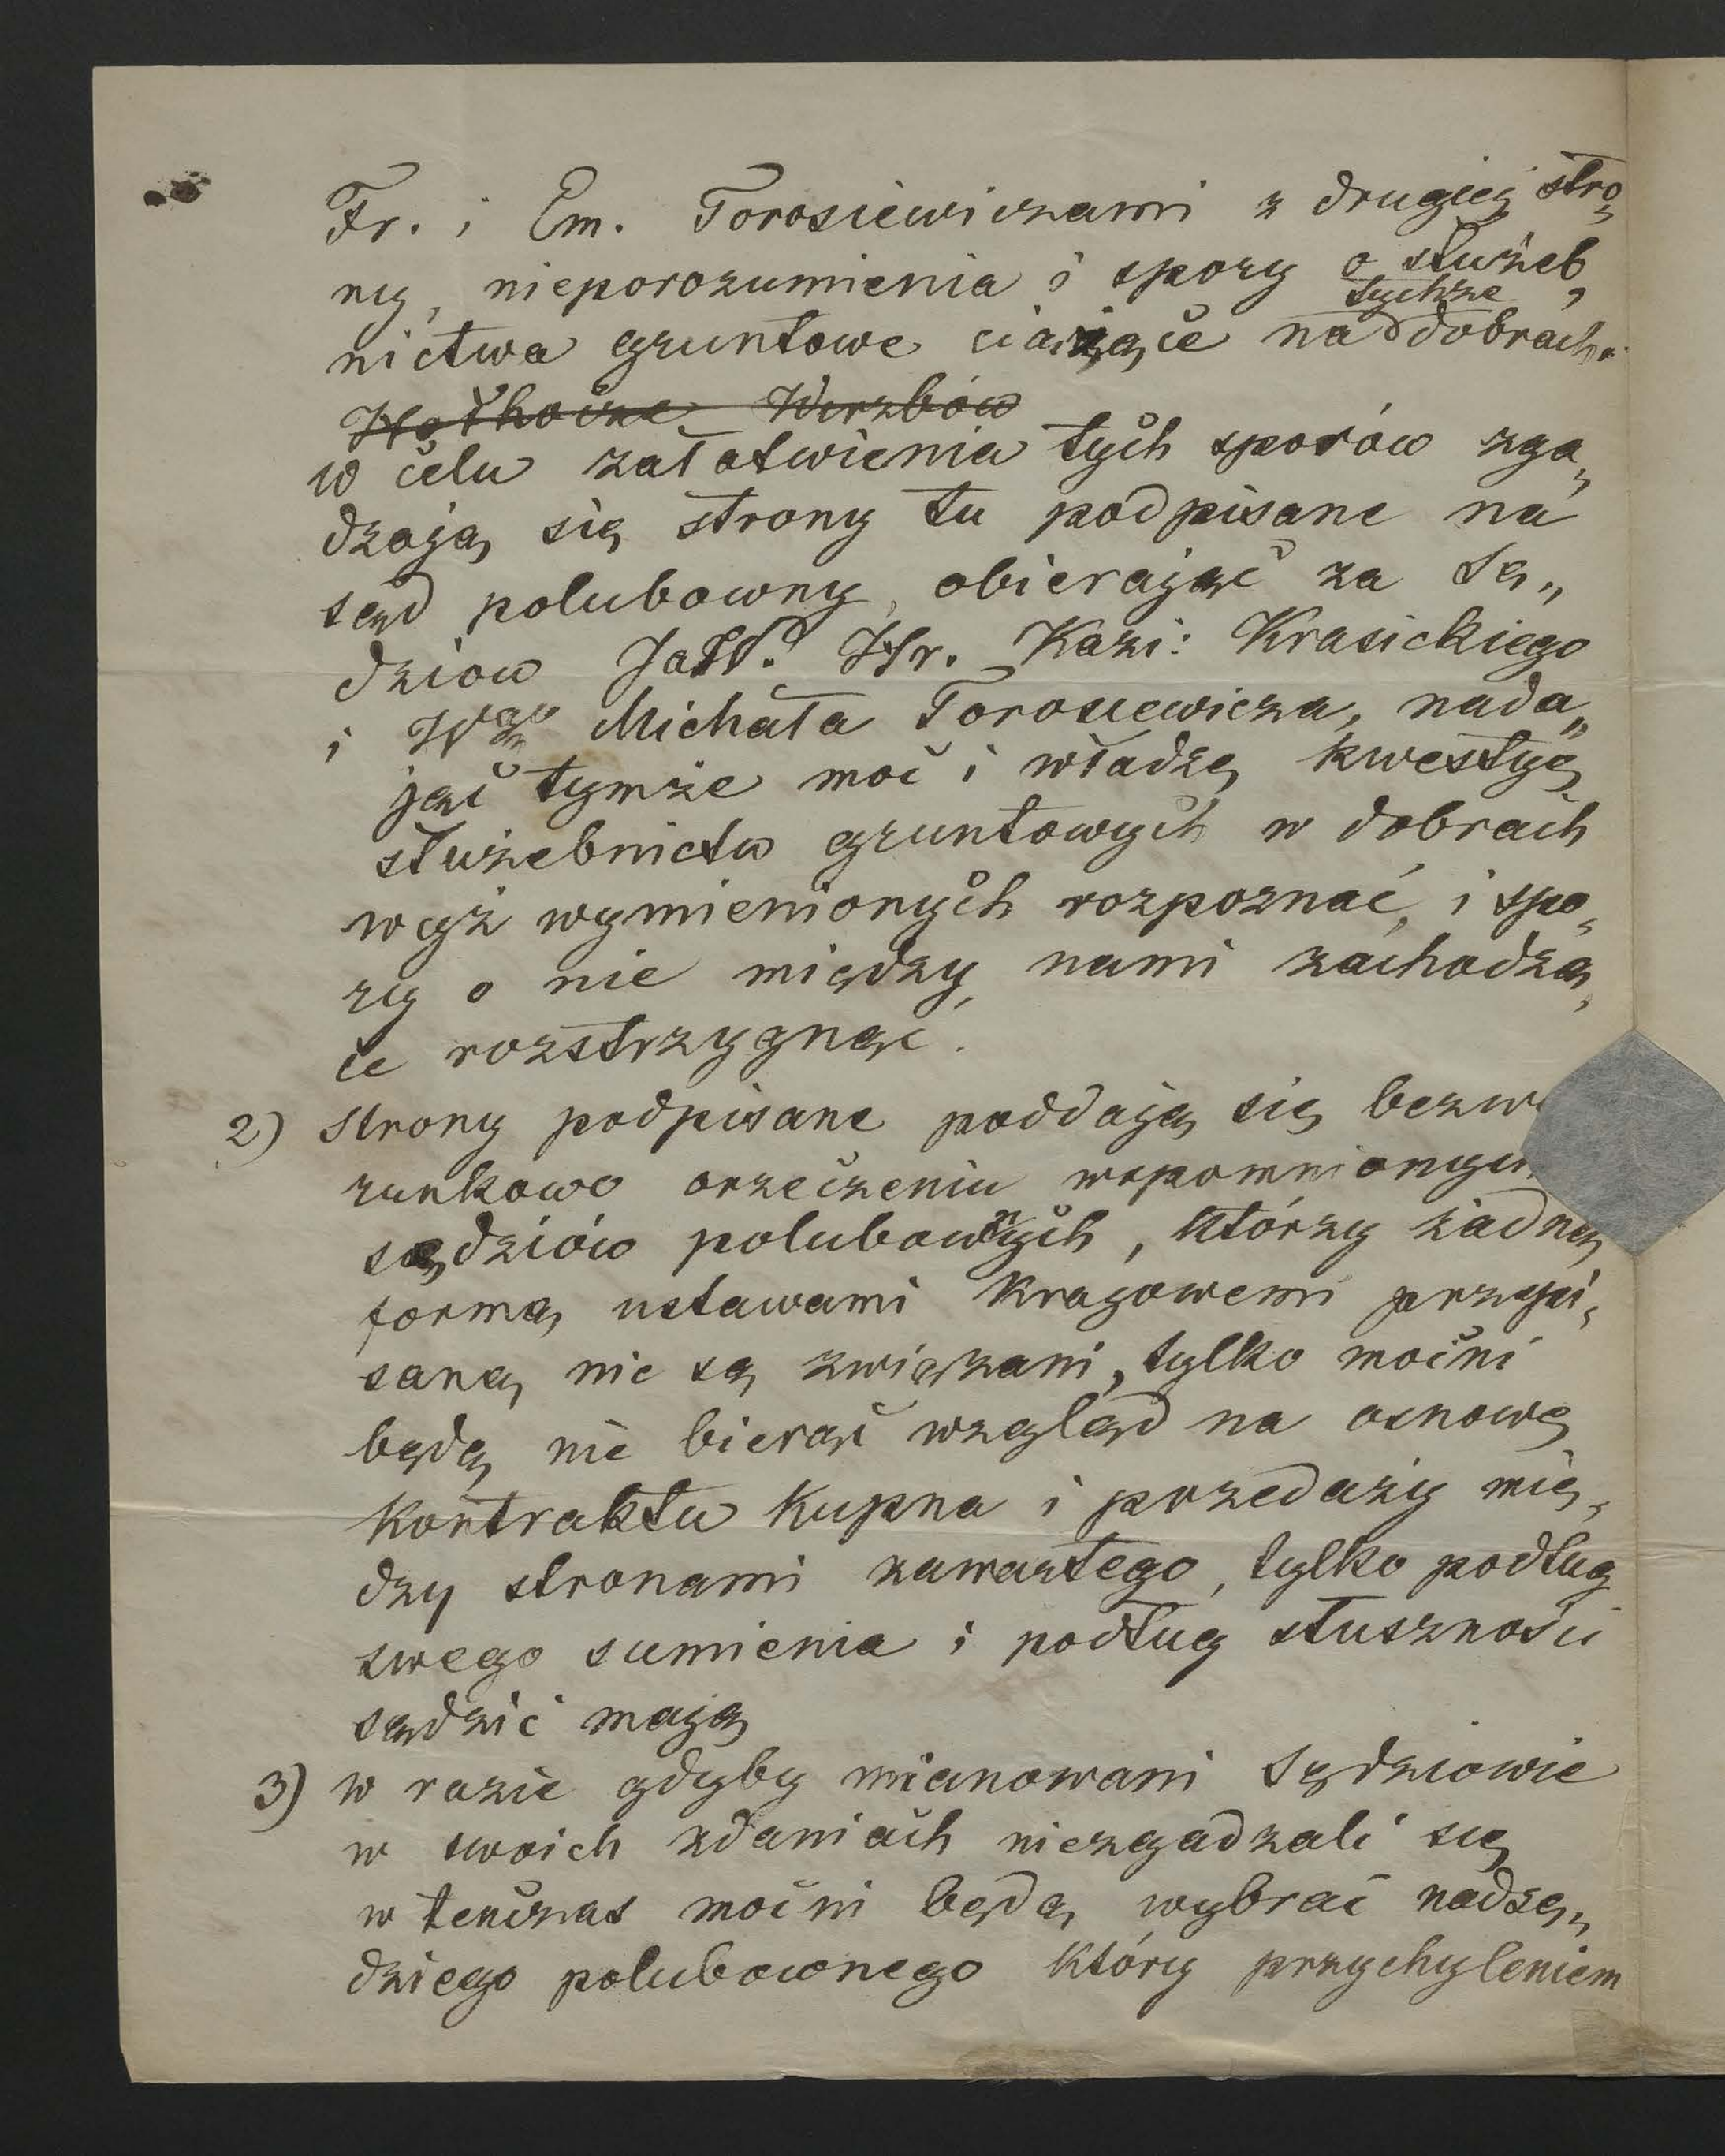 Fr. i Em. Torosiewiczami z drugiej stro„
ny, nieporozumienia i spory o służeb„
nictwa gruntowe ciążące na tychże dobrach.
Hołhocze Wierzbów
w celu załatwienia tych sporów zga„
dzają się strony tu podpisane na
sąd polubowny, obierając za Sę„
dziow JaW. Hr. Kazi: Krasickiego
i Wgo Michała Torosiewicza, nada„
jąc tymże moc i władzę kwestyę
służebnictw gruntowych w dobrach
wyż wymienionych rozpoznać, i spo„
ry o nie między nami zachodzą„
ce rozstrzygnąć.
2) Strony podpisane poddają się bezwa
runkowo orzeczeniu wspomnionych
sędziów polubownych, którzy żadną
formą ustawami krajowemi przepi„
saną nie są związani, tylko mocni
będą nie bierąc wzgląd na osnowę
kontraktu kupna i przedaży mię„
dzy stronami zawartego, tylko podług
swego sumienia i podług słuszności
sądzić mają
3) w razie gdyby mianowani Sędziowie
w swoich zdaniach niezgadzali się
w tenczas mocni będą wybrać nadsę„
dziego polubownego który przychyleniem